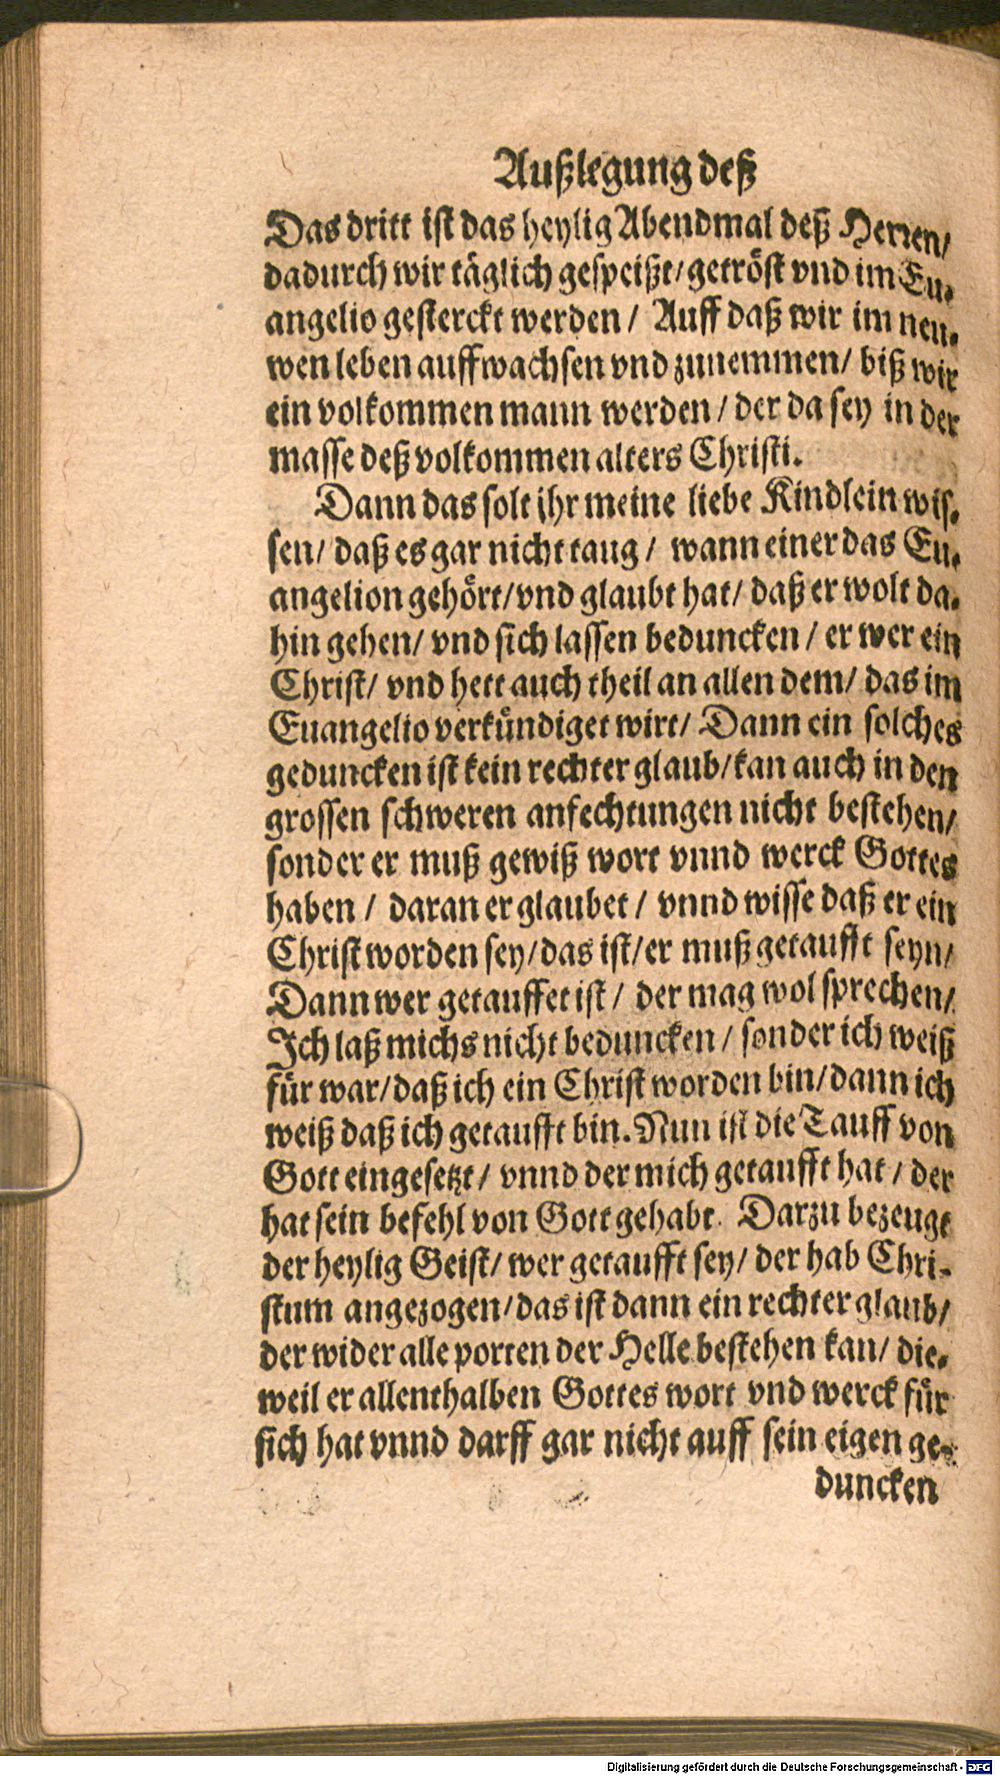 Außlegung deß
Das dritt ist das heylig Abendmal deß Herren/
dadurch wir täglich gespeißt/ getröst vnd im Eu-
angelio gesterckt werden / Auff daß wir im neu-
wen leben auffwachsen vnd zunemmen/ biß wir
ein volkommen mann werden / der da sey in der
masse deß volkommen alters Christi.
Dann das solt ihr meine liebe Kindlein wis-
sen/ daß es gar nicht taug / wann einer das Eu-
angelion gehört/ vnd glaubt hat/ daß er wolt da-
hin gehen/ vnd sich lassen beduncken / er wer ein
Christ/ vnd hett auch theil an allen dem/ das im
Euangelio verkündiget wirt/ Dann ein solches
geduncken ist kein rechter glaub/ kan auch in den
grossen schweren anfechtungen nicht bestehen/
sonder er muß gewiß wort vnnd werck Gottes
haben / daran er glaubet / vnnd wisse daß er ein
Christ worden sey/ das ist/ er muß getaufft seyn/
Dann wer getauffet ist / der mag wol sprechen/
Ich laß michs nicht beduncken / sonder ich weiß
für war/ daß ich ein Christ worden bin/ dann ich
weiß daß ich getaufft bin. Nun ist die Tauff von
Gott eingesetzt / vnnd der mich getaufft hat / der
hat sein befehl von Gott gehabt. Darzu bezeugt
der heylig Geist/ wer getaufft sey/ der hab Chri-
stum angezogen/ das ist dann ein rechter glaub/
der wider alle porten der Helle bestehen kan/ die-
weil er allenthalben Gottes wort vnd werck für
sich hat vnnd darff gar nicht auff sein eigen ge-
duncken
Digitalisierung gefördert durch die Deutsche Forschungsgemeinschaft - DFG